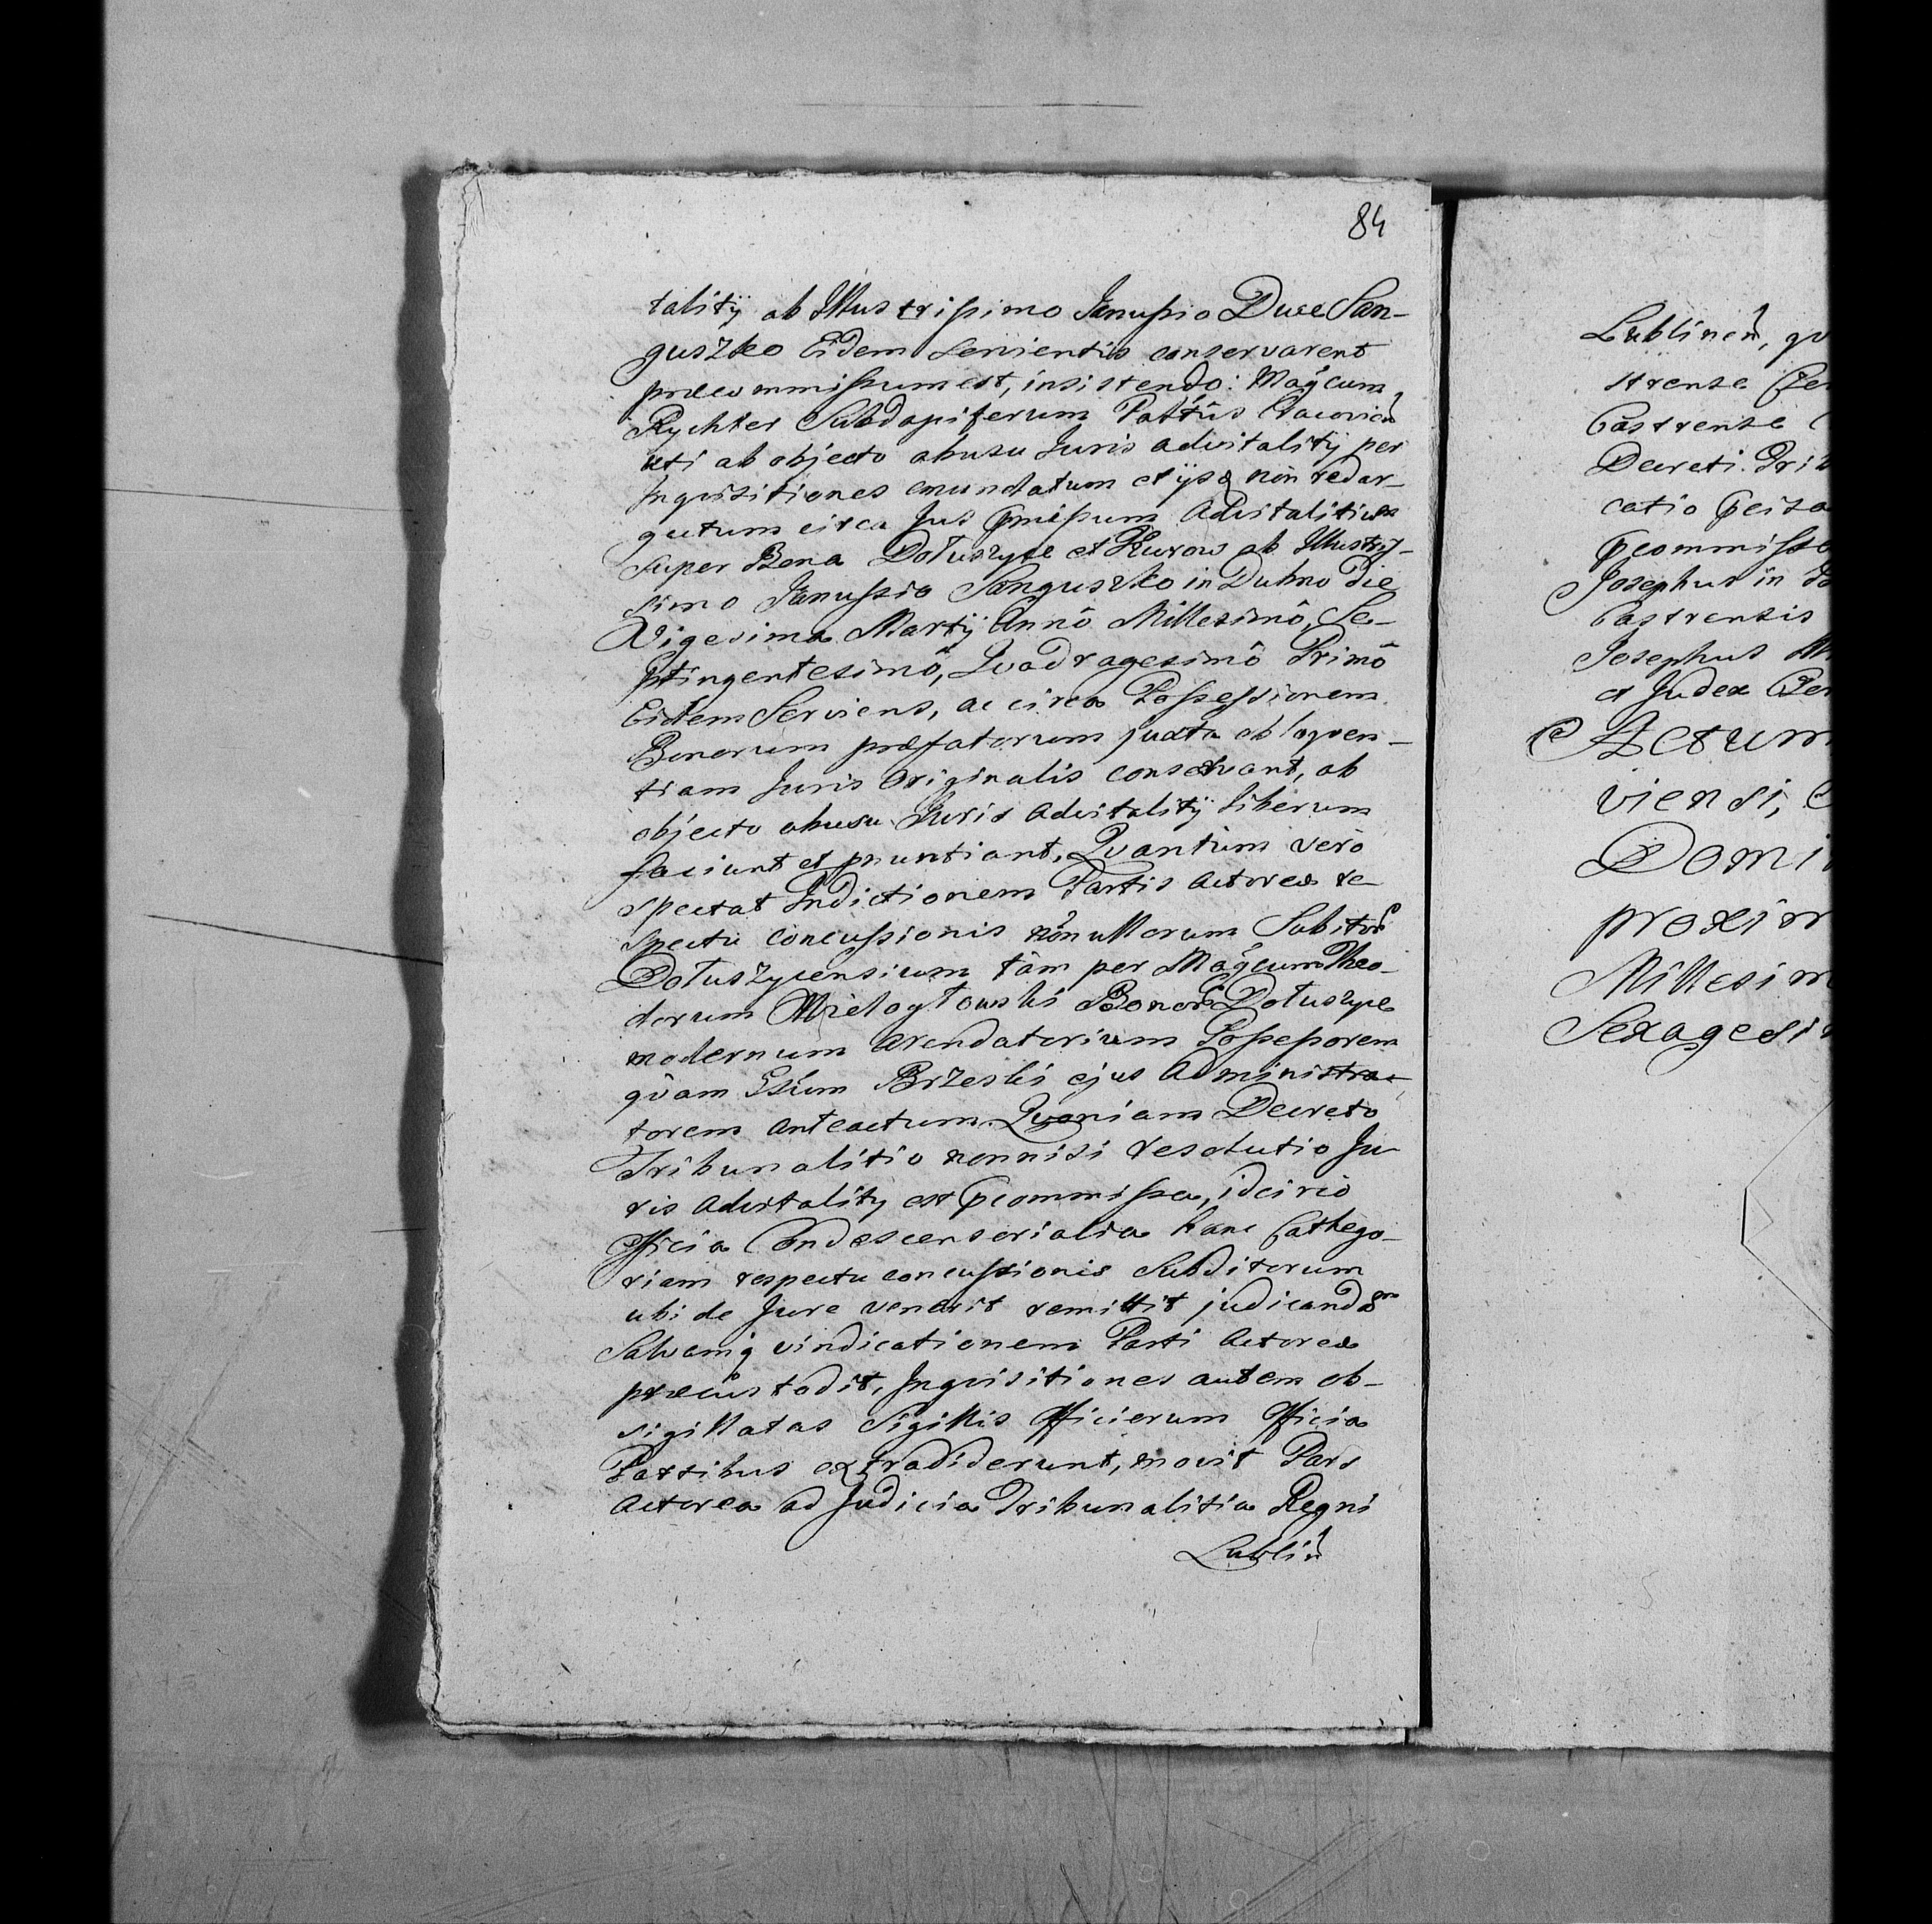 84
talitÿ ab Illustrissimo Janussio Duce San-
guszko Eidem servientis conservarent
præcommissum est, insistendo: Mag̃cum
Rychter Subdapiferum Palt̃tũs Cracovieñ
uti ab objecto abusu Juris advitalitÿ per
Inqvisitiones emundatum et ijsq́ nòn redar-
gutum circa Jus p̃missum Advitalitium
super Bona Dołuszyce et Kurow ab Illustris-
simo Janussio Sanguszko in Dubno Die
Vigesima Martÿ Annô Millesimô, Se-
ptingentesimô, Qvadragesimô Primô
Eidem Serviens, ac circa Possessionem
Bonorum præfatorum juxta obloqven-
tiam Juris Originalis conservant, ab
objecto abusu Juris Advitalitÿ liberum
faciunt et p̃nuntiant, Qvantùm verò
spectat Indictionem Partis Actoreæ re-
spectu concussionis nòn ullorum Subitor̃
Dołuszycensium tàm per Mag̃cum Theo-
dorum Wielogłowski Bonor̃ Dołuszyce
modernum Arendatorium Possessorem
qvàm Gsũm Brzeski ejus Administra-
torem anteactum. Qvoniam Decreto
Tribunalitio nonnisi resolutio Ju-
ris Advitality est p̃commissa, idcirco
Officia Condescensorialia hanc Cathego-
riam respectu concussionis Subditorum
ubi de Jure venerit remittit judicandam
Salvamq́ vindicationem Parti Actoreæ
præcustodit, Inqvisitiones autem ob-
sigillatas Sigillis Officiorum Officia
Partibus extradiderunt, movit Pars
Actorea ad Judicia Tribunalitia Regni
Lublin̄
Lublineñ, qv
strense
Castrense
Decreti. Tri
catio
p̃commisso
Josephus in
Castrensis
Josephus
et Judex
Actum
viensi,
Domi
proxim
Millesim
Sexagesi